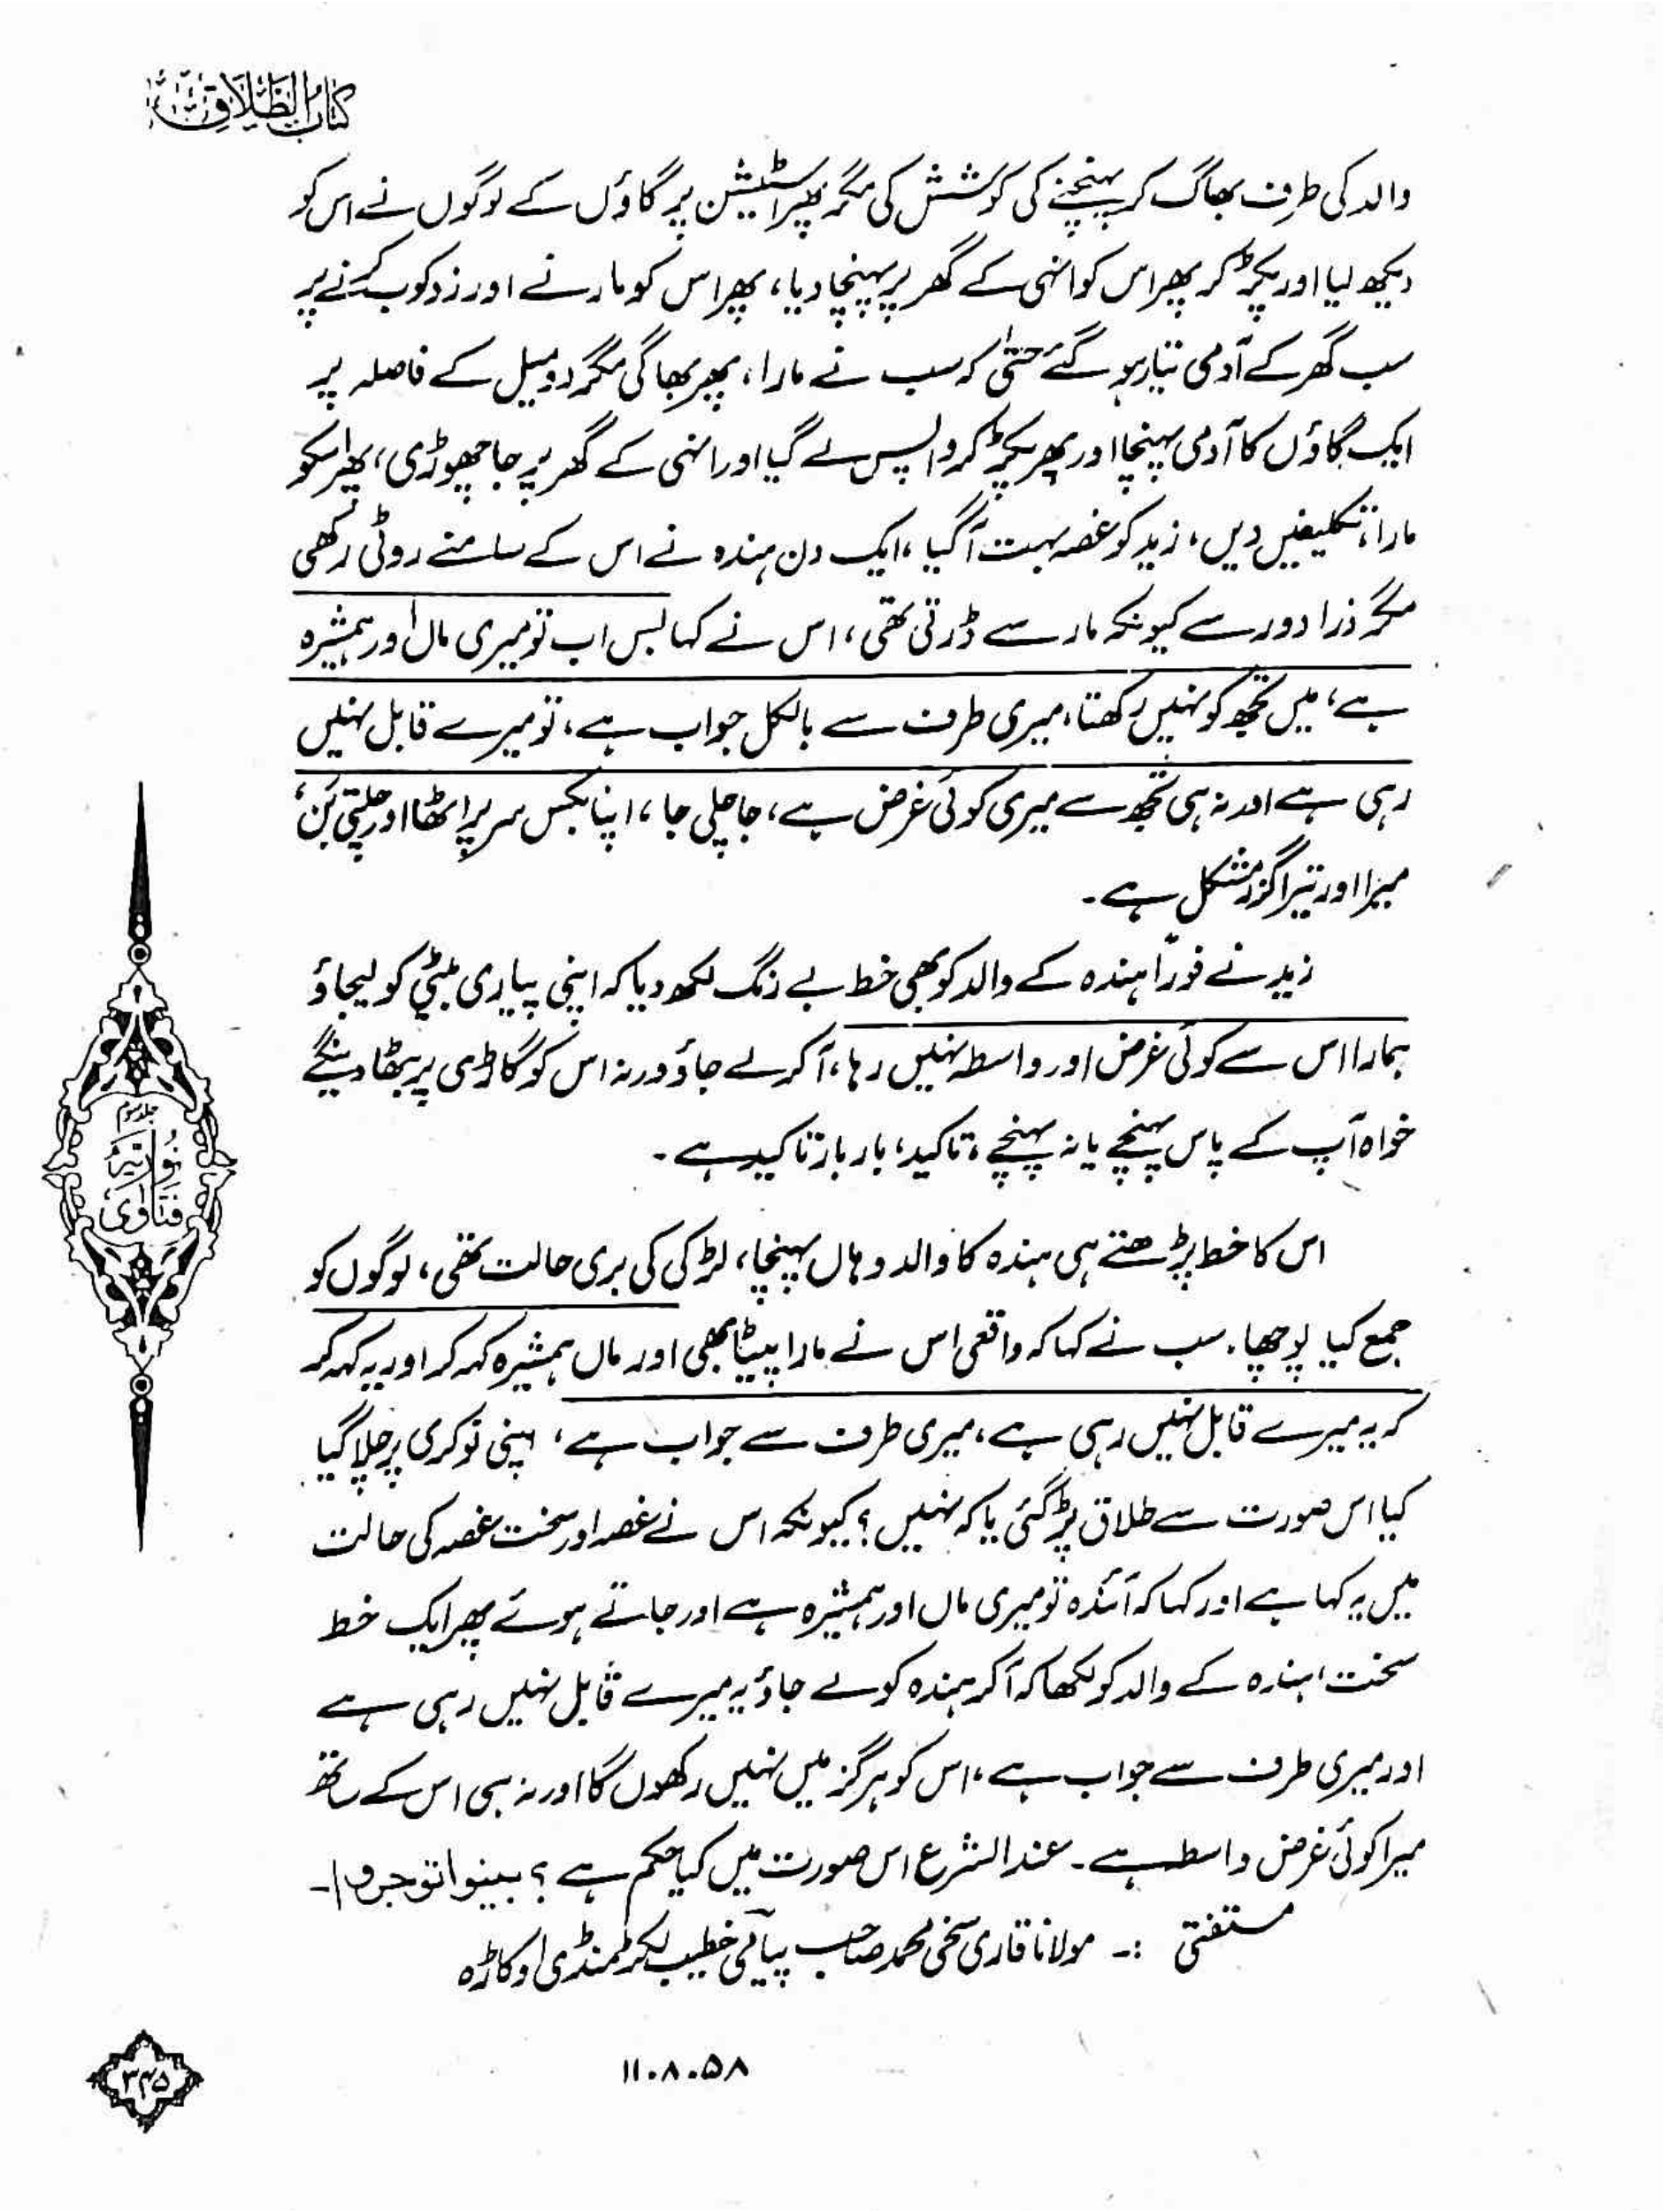 کتاب الطلاق
والد کی طرف بھاگ کر پہنچنے کی کوشش کی مگر پھر اسٹیشن پر گاؤں کے لوگوں نے اس کو
دیکھ لیا اور پکڑ کر پھر اس کو انہی کے گھر پر پہنچا دیا، پھر اس کو مارنے اور زدوکوب کرنے پر
سب گھر کے آدمی تیار ہو گئے حتیٰ کہ سب نے مارا، پھر بھاگی مگر دو میل کے فاصلہ پر
ایک گاؤں کا آدمی پہنچا اور پھر پکڑ کر واپس لے گیا اور انہی کے گھر پر جا چھوڑی، پھر اسکو
مارا، تکلیفیں دیں، زید کو غصہ بہت آگیا، ایک دن ہندہ نے اس کے سامنے روٹی رکھی
مگر ذرا دور سے کیونکہ مار سے ڈرتی تھی، اس نے کہا بس اب تو میری ماں اور ہمشیرہ
ہے، میں تجھ کو نہیں رکھتا، میری طرف سے بالکل جواب ہے، تو میرے قابل نہیں
رہی ہے اور نہ ہی تجھ سے میری کوئی غرض ہے، جا چلی جا، اپنا بکس سر پر اٹھا اور چلتی بن،
میرا اور تیرا گزر مشکل ہے۔
زید نے فوراً ہندہ کے والد کو بھی خط بے رنگ لکھ دیا کہ اپنی پیاری بیٹی کو لیجاؤ
ہمارا اس سے کوئی غرض اور واسطہ نہیں رہا، آکر لے جاؤ ورنہ اس کو گاڑی پر بٹھا دینگے
خواہ آپ کے پاس پہنچے یا نہ پہنچے، تاکید، بار بار تاکید ہے۔
اس کا خط پڑھتے ہی ہندہ کا والد وہاں پہنچا، لڑکی کی بری حالت تھی، لوگوں کو
جمع کیا پوچھا۔ سب نے کہا کہ واقعی اس نے مارا پیٹا بھی اور ماں ہمشیرہ کہہ کر اور یہ کہہ کر
کہ یہ میرے قابل نہیں رہی ہے، میری طرف سے جواب ہے، اپنی نوکری پر چلا گیا
کیا اس صورت سے طلاق پڑ گئی یا کہ نہیں؟ کیونکہ اس نے غصہ اور سخت غصہ کی حالت
میں یہ کہا ہے اور کہا کہ آئندہ تو میری ماں اور ہمشیرہ ہے اور جاتے ہوئے پھر ایک خط
سخت، ہندہ کے والد کو لکھا کہ آکر ہندہ کو لے جاؤ یہ میرے قابل نہیں رہی ہے
اور میری طرف سے جواب ہے، اس کو ہرگز میں نہیں رکھوں گا اور نہ ہی اس کے ساتھ
میرا کوئی غرض واسطہ ہے۔ عندالشرع اس صورت میں کیا حکم ہے؟ بینوا توجروا۔
مستفتی :۔ مولانا قاری سخی محمد صاحب خطیب لکڑ منڈی اوکاڑہ
۱۱.۸.۵۸
جلد سوم
نوریہ
فتاویٰ
۳۴۵